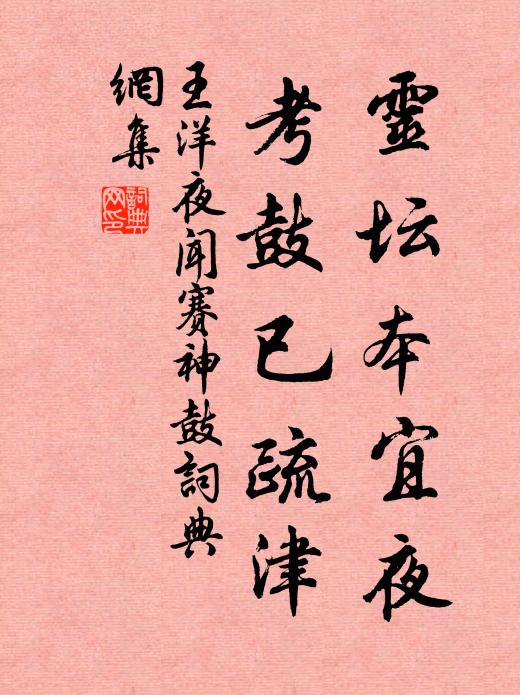 靈坛本宜夜
考鼓已疏津
王洋夜闻赛神鼓詞典
網集
詞典
网印